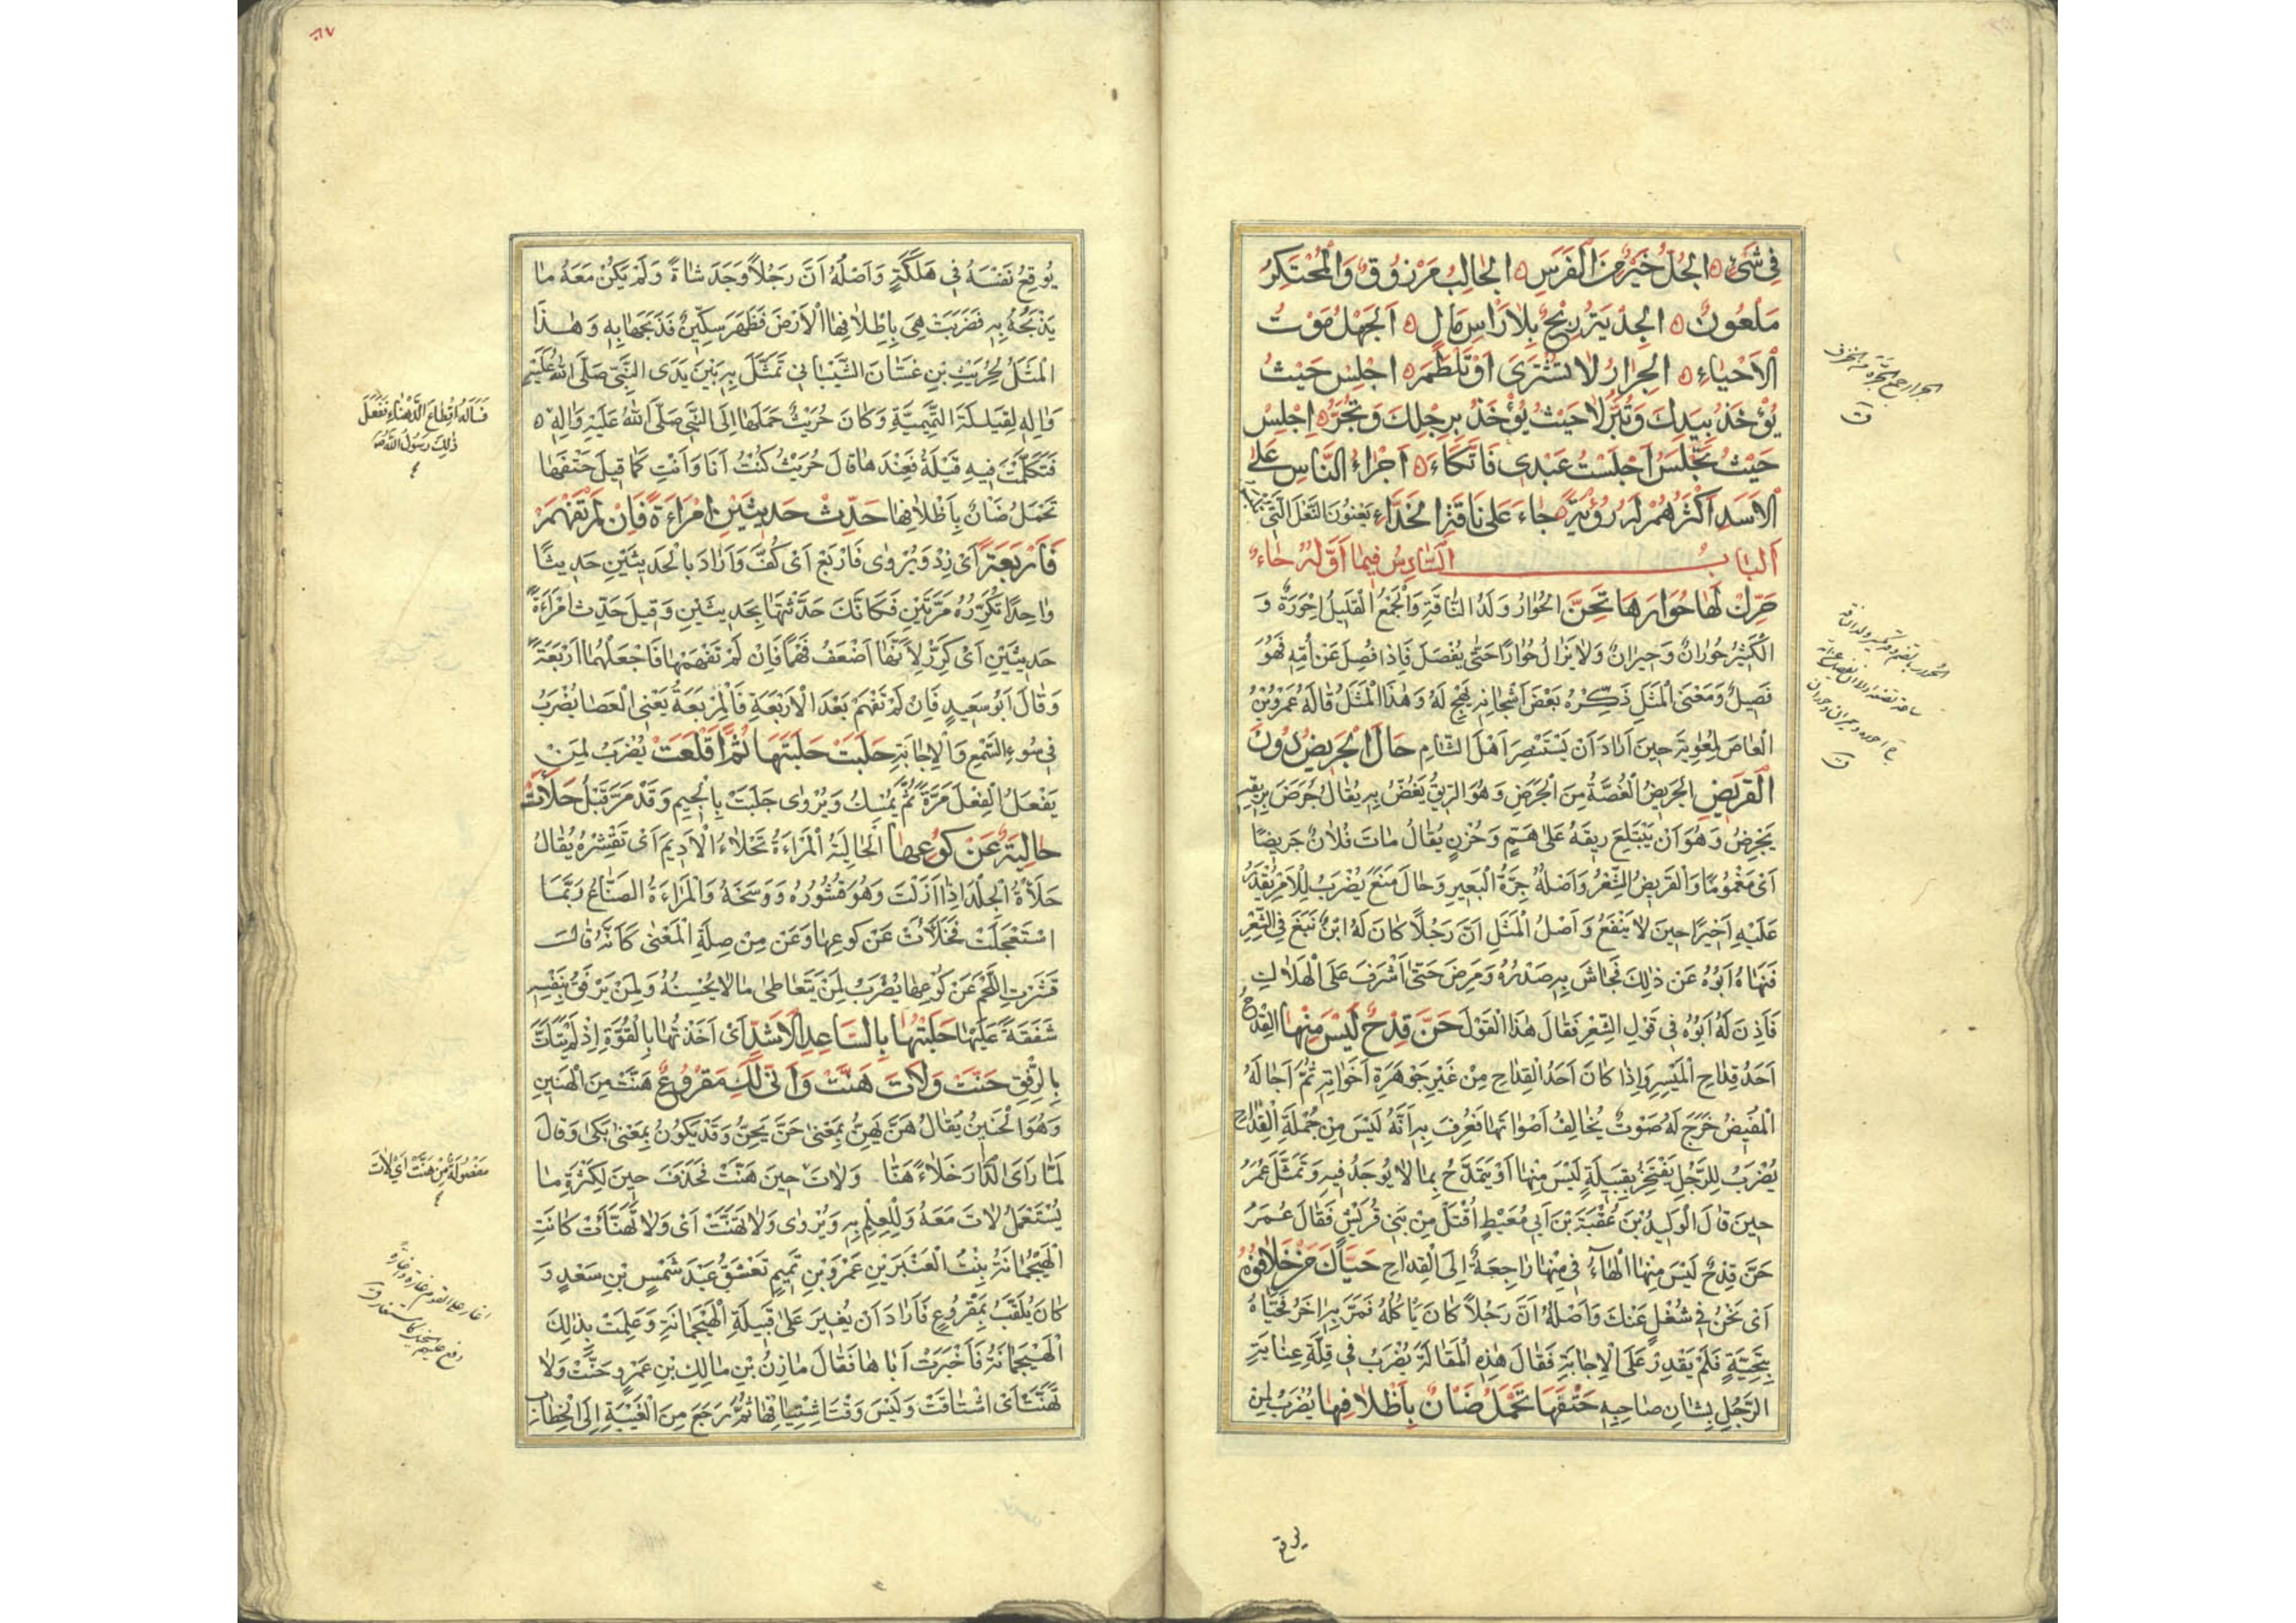 فِي شَيْءٍ ۵ الجُلُّ خَيْرٌ مِنَ الْفَرَسِ ۵ الْجَالِبُ مَرْزُوقٌ وَالْمُحْتَكِرُ
مَلْعُونٌ ۵ الْجِدْيَةُ رِبْحٌ بِلَا رَأْسِ مَالٍ ۵ الْجَهْلُ مَوْتُ
الْأَحْيَاءِ ۵ الْجِرَارُ لَا تُشْتَرَى أَوْ تُلْطَمَ ۵ اجْلِسْ حَيْثُ
يُؤْخَذُ بِيَدِكَ وَتُبَرُّ لَا حَيْثُ يُؤْخَذُ بِرِجْلِكَ وَتُجَرُّ ۵ اجْلِسْ
حَيْثُ تُجْلَسُ أَجْلَسْتُ عَبْدِي فَاتَّكَأَ ۵ أَجْرَاءُ النَّاسِ عَلَى
الْأَسَدِ أَكْثَرُهُمْ لَهُ رُؤْيَةً جَاءَ عَلَى نَاقَةِ الْحَذَّاءِ يَعْنُونَ النَّعْلَ الَّتِي
اَلْبَابُ السَّادِسُ فِيمَا أَوَّلُهُ حَاءٌ
حَرِّكْ لَهَا حُوَارَهَا تَحِنَّ الْحُوَارُ وَلَدُ النَّاقَةِ وَالْجَمْعُ الْقَلِيلُ أَحْوِرَةٌ وَ
الْكَثِيرُ حُورَانٌ وَحِيرَانٌ وَلَا يَزَالُ حُوَارًا حَتَّى يُفْصَلَ فَإِذَا فُصِلَ عَنْ أُمِّهِ فَهُوَ
فَصِيلٌ وَمَعْنَى الْمَثَلِ ذَكِّرْهُ بَعْضَ أَشْجَانِهِ يَهِجْ لَهُ وَهٰذَا الْمَثَلُ قَالَهُ عَمْرُو بْنُ
الْعَاصِ لِمُعٰوِيَةَ حِينَ أَرَادَ أَنْ يَسْتَنْصِرَ أَهْلَ الشَّامِ حَالَ الْجَرِيضُ دُونَ
الْقَرِيضِ الْجَرِيضُ الْغُصَّةُ مِنَ الْجَرَضِ وَهُوَ الرِّيقُ يَغَصُّ بِهِ يُقَالُ جَرِضَ بِرِيقِهِ
يَجْرِضُ وَهُوَ أَنْ يَبْتَلِعَ رِيقَهُ عَلَى هَمٍّ وَحُزْنٍ يُقَالُ مَاتَ فُلَانٌ جَرِيضًا
أَيْ مَغْمُومًا وَالْقَرِيضُ الشِّعْرُ وَأَصْلُهُ جِرَّةُ الْبَعِيرِ وَحَالَ مَنَعَ يُضْرَبُ لِلْأَمْرِ يُقْدَرُ
عَلَيْهِ أَخِيرًا حِينَ لَا يَنْفَعُ وَأَصْلُ الْمَثَلِ أَنَّ رَجُلًا كَانَ لَهُ ابْنٌ نَبَغَ فِي الشِّعْرِ
فَنَهَاهُ أَبُوهُ عَنْ ذٰلِكَ فَجَاشَ بِهِ صَدْرُهُ وَمَرِضَ حَتَّى أَشْرَفَ عَلَى الْهَلَاكِ
فَأَذِنَ لَهُ أَبُوهُ فِي قَوْلِ الشِّعْرِ فَقَالَ هٰذَا الْقَوْلَ حَنَّ قِدْحٌ لَيْسَ مِنْهَا الْقِدْحُ
أَحَدُ قِدَاحِ الْمَيْسِرِ وَإِذَا كَانَ أَحَدُ الْقِدَاحِ مِنْ غَيْرِ جَوْهَرَةِ أَخَوَاتِهِ ثُمَّ أَجَالَهُ
الْمُفِيضُ خَرَجَ لَهُ صَوْتٌ يُخَالِفُ أَصْوَاتَهَا فَعُرِفَ بِهِ أَنَّهُ لَيْسَ مِنْ جُمْلَةِ الْقِدَاحِ
يُضْرَبُ لِلرَّجُلِ يَفْتَخِرُ بِقَبِيلَةٍ لَيْسَ مِنْهَا أَوْ يَتَمَدَّحُ بِمَا لَا يُوجَدُ فِيهِ وَتَمَثَّلَ عُمَرُ
حِينَ قَالَ الْوَلِيدُ بْنُ عُقْبَةَ بْنِ أَبِي مُعَيْطٍ أُقْتَلُ مِنْ بَنِي قُرَيْشٍ فَقَالَ عُمَرُ
حَنَّ قِدْحٌ لَيْسَ مِنْهَا الْهَاءُ فِي مِنْهَا رَاجِعَةٌ إِلَى الْقِدَاحِ حَيَّاكَ مَنْ خَلَا فُوهُ
أَيْ نَحْنُ فِي شُغْلٍ عَنْكَ وَأَصْلُهُ أَنَّ رَجُلًا كَانَ يَأْكُلُ فَمَرَّ بِهِ آخَرُ فَحَيَّاهُ
بِتَحِيَّةٍ فَلَمْ يَقْدِرْ عَلَى الْإِجَابَةِ فَقَالَ هٰذِهِ الْمَقَالَةَ يُضْرَبُ فِي قِلَّةِ عِنَايَةِ
الرَّجُلِ بِشَانِ صَاحِبِهِ حَتْفَهَا تَحْمِلُ ضَانٌ بِأَظْلَافِهَا يُضْرَبُ لِمَنْ
يوقع
الجرار جمع الجرة من الخزف
ق
يُوقِعُ نَفْسَهُ فِي هَلَكَةٍ وَأَصْلُهُ أَنَّ رَجُلًا وَجَدَ شَاةً وَلَمْ يَكُنْ مَعَهُ مَا
يَذْبَحُهُ بِهِ فَضَرَبَتْ هِيَ بِأَظْلَافِهَا الْأَرْضَ فَظَهَرَ سِكِّينٌ فَذَبَحَهَا بِهِ وَهٰذَا
الْمَثَلُ لِحُرَيْثِ بْنِ غَسَّانَ الشَّيْبَانِي تَمَثَّلَ بِهِ بَيْنَ يَدَيِ النَّبِيِّ صَلَّى اللهُ عَلَيْهِ
وَاٰلِهِ لِقَيْلَةَ التَّمِيمِيَّةِ وَكَانَ حُرَيْثٌ حَمَلَهَا إِلَى النَّبِيِّ صَلَّى اللهُ عَلَيْهِ وَاٰلِهِ ۵
فَتَكَلَّمَتْ فِيهِ قَيْلَةُ فَعِنْدَهَا قَالَ حُرَيْثُ كُنْتُ أَنَا وَأَنْتِ كَمَا قِيلَ حَتْفَهَا
تَحْمِلُ ضَانٌ بِأَظْلَافِهَا حَدِّثْ حَدِيثَيْنِ امْرَاَةً فَإِنْ لَمْ تَفْهَمْ
فَأَرْبَعَةً أَيْ زِدْ وَيُرْوٰى فَارْبَعْ أَيْ كُفَّ وَأَرَادَ بِالْحَدِيثَيْنِ حَدِيثًا
وَاحِدًا تُكَرِّرُهُ مَرَّتَيْنِ فَكَأَنَّكَ حَدَّثْتَهَا بِحَدِيثَيْنِ وَقِيلَ حَدِّثِ امْرَاَةً
حَدِيثَيْنِ أَيْ كَرِّرْ لِأَنَّهَا أَضْعَفُ فَهْمًا فَإِنْ لَمْ تَفْهَمْهَا فَاجْعَلْهُمَا أَرْبَعَةً
وَقَالَ أَبُو سَعِيدٍ فَإِنْ لَمْ تَفْهَمْ بَعْدَ الْأَرْبَعَةِ فَالْمِرْبَعَةُ يَعْنِي الْعَصَا يُضْرَبُ
فِي سُوءِ السَّمْعِ وَالْإِجَابَةِ حَلَبَتْ حَلْبَتَهَا ثُمَّ أَقْلَعَتْ يُضْرَبُ لِمَنْ
يَفْعَلُ الْفِعْلَ مَرَّةً ثُمَّ يُمْسِكُ وَيُرْوٰى جَلَبَتْ بِالْجِيمِ وَقَدْ مَرَّ قَبْلُ حَلَأَتْ
حَالِيَةٌ عَنْ كُوعِهَا الْحَالِيَةُ الْمَرْاَةُ تَحْلَاءُ الْأَدِيمَ أَيْ تَقْشِرُهُ يُقَالُ
حَلَأْتُ الْجِلْدَ إِذَا أَزَلْتَ وَهُوَ قُشُورُهُ وَوَسَخُهُ وَالْمَرْاَةُ الصَّنَاعُ رُبَّمَا
اسْتَعْجَلَتْ فَحَلَأَتْ عَنْ كُوعِهَا وَعَنْ مِنْ صِلَةِ الْمَعْنٰى كَأَنَّهُ قَالَ
قَشَرَتِ اللَّحْمَ عَنْ كُوعِهَا يُضْرَبُ لِمَنْ يَتَعَاطٰى مَا لَا يُحْسِنُهُ وَلِمَنْ يَرْفَقُ بِنَفْسِهِ
شَفَقَةً عَلَيْهَا حَلَبْتُهَا بِالسَّاعِدِ الْأَشَدِّ أَيْ أَخَذْتُهَا بِالْقُوَّةِ إِذْ لَمْ يَتَأَتَّ
بِالرِّفْقِ حَنَّتْ وَلَاتَ هَنَّتْ وَأَنّٰى لَكِ مَقْرُوعٌ هَنَّتْ مِنَ الْهَنِينِ
وَهُوَ الْحَنِينُ يُقَالُ هَنَّ يَهِنُّ بِمَعْنٰى حَنَّ يَحِنُّ وَقَدْ يَكُونُ بِمَعْنٰى بَكٰى وَقَالَ
لَمَّا رَأَى الدَّارَ خَلَاءً هَنَّا وَلَاتَ حِينَ هَنَّتْ فَحَذَفَ حِينَ لِكَثْرَةِ مَا
يُسْتَعْمَلُ لَاتَ مَعَهُ وَلِلْعِلْمِ بِهِ وَيُرْوٰى وَلَا تَهَنَّتْ أَيْ وَلَا تَهَنَّأَتْ كَانَتِ
الْهَيْجُمَانَةُ بِنْتُ الْعَنْبَرِ بْنِ عَمْرِو بْنِ تَمِيمٍ تَعْشَقُ عَبْدَ شَمْسِ بْنِ سَعْدٍ وَ
كَانَ يُلَقَّبُ بِمَقْرُوعٍ فَأَرَادَ أَنْ يُغِيرَ عَلَى قَبِيلَةِ الْهَيْجُمَانَةِ وَعَلِمَتْ بِذٰلِكَ
الْهَيْجُمَانَةُ فَأَخْبَرَتْ أَبَاهَا فَقَالَ مَازِنُ بْنُ مَالِكِ بْنِ عَمْرٍو حَنَّتْ وَلَا
تَهَنَّتْ أَيْ اشْتَاقَتْ وَلَيْسَ وَقْتَ اشْتِيَاقِهَا ثُمَّ رَجَعَ مِنَ الْغَيْبَةِ إِلَى الْخِطَابِ
فَسَأَلَهُ إِقْطَاعَ الدَّهْنَاءِ فَفَعَلَ
ذٰلِكَ رَسُولُ اللهِ
مَفْصُولَةٌ مِنْ هَنَّتْ أَيْ لَاتَ